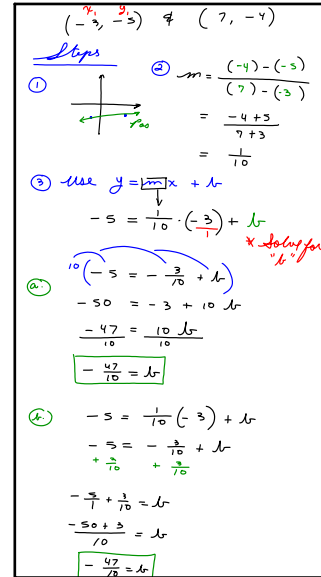 x₁ y₁
(-3, -5) & (7, -4)
Steps
①
Pos
② m = ((-4) - (-5)) / ((7) - (-3))
= (-4 + 5) / (7 + 3)
= 1/10
③ Use y = [m]x + b
-5 = 1/10 · (-3)/1 + b
* Solve for "b"
a. 10(-5 = -3/10 + b)
-50 = -3 + 10 b
-47/10 = 10 b/10
-47/10 = b
b. -5 = 1/10 (-3) + b
-5 = -3/10 + b
+ 3/10 + 3/10
-5/1 + 3/10 = b
(-50 + 3)/10 = b
-47/10 = b